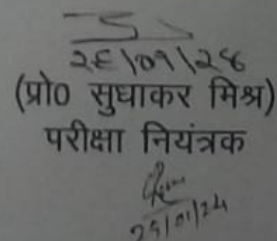 २६|०१|२४
(प्रो0 सुधाकर मिश्र)
परीक्षा नियंत्रक
25|01|24